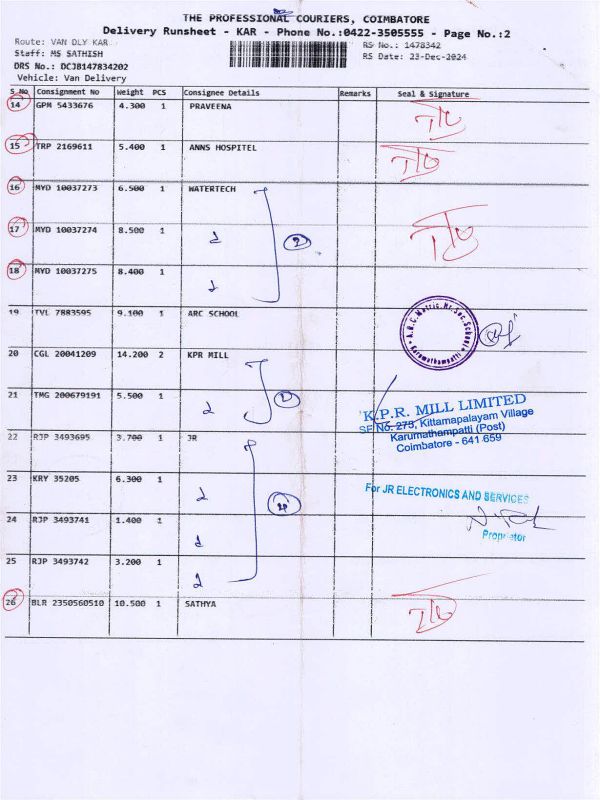 THE PROFESSIONAL COURIERS, COIMBATORE
Delivery Runsheet - KAR - Phone No.:0422-3505555 - Page No.:2
Route: VAN DLY KAR
Staff: MS SATHISH
DRS No.: DCJB147834202
Vehicle: Van Delivery
RS No.: 1478342
RS Date: 23-Dec-2024
S No Consignment No Weight PCS Consignee Details Remarks Seal & Signature
14 GPM 5433676 4.300 1 PRAVEENA
15 TRP 2169611 5.400 1 ANNS HOSPITEL
16 MYD 10037273 6.500 1 WATERTECH
17 MYD 10037274 8.500 1
18 MYD 10037275 8.400 1
19 TVL 7883595 9.100 1 ARC SCHOOL
20 CGL 20041209 14.200 2 KPR MILL
21 TMG 200679191 5.500 1
K.P.R. MILL LIMITED
SF No. 275, Kittamapalayam Village
Karumathampatti (Post)
Coimbatore - 641 659
22 RJP 3493695 3.700 1 JR
23 KRY 35205 6.300 1
For JR ELECTRONICS AND SERVICES
24 RJP 3493741 1.400 1
Proprietor
25 RJP 3493742 3.200 1
26 BLR 2350560510 10.500 1 SATHYA